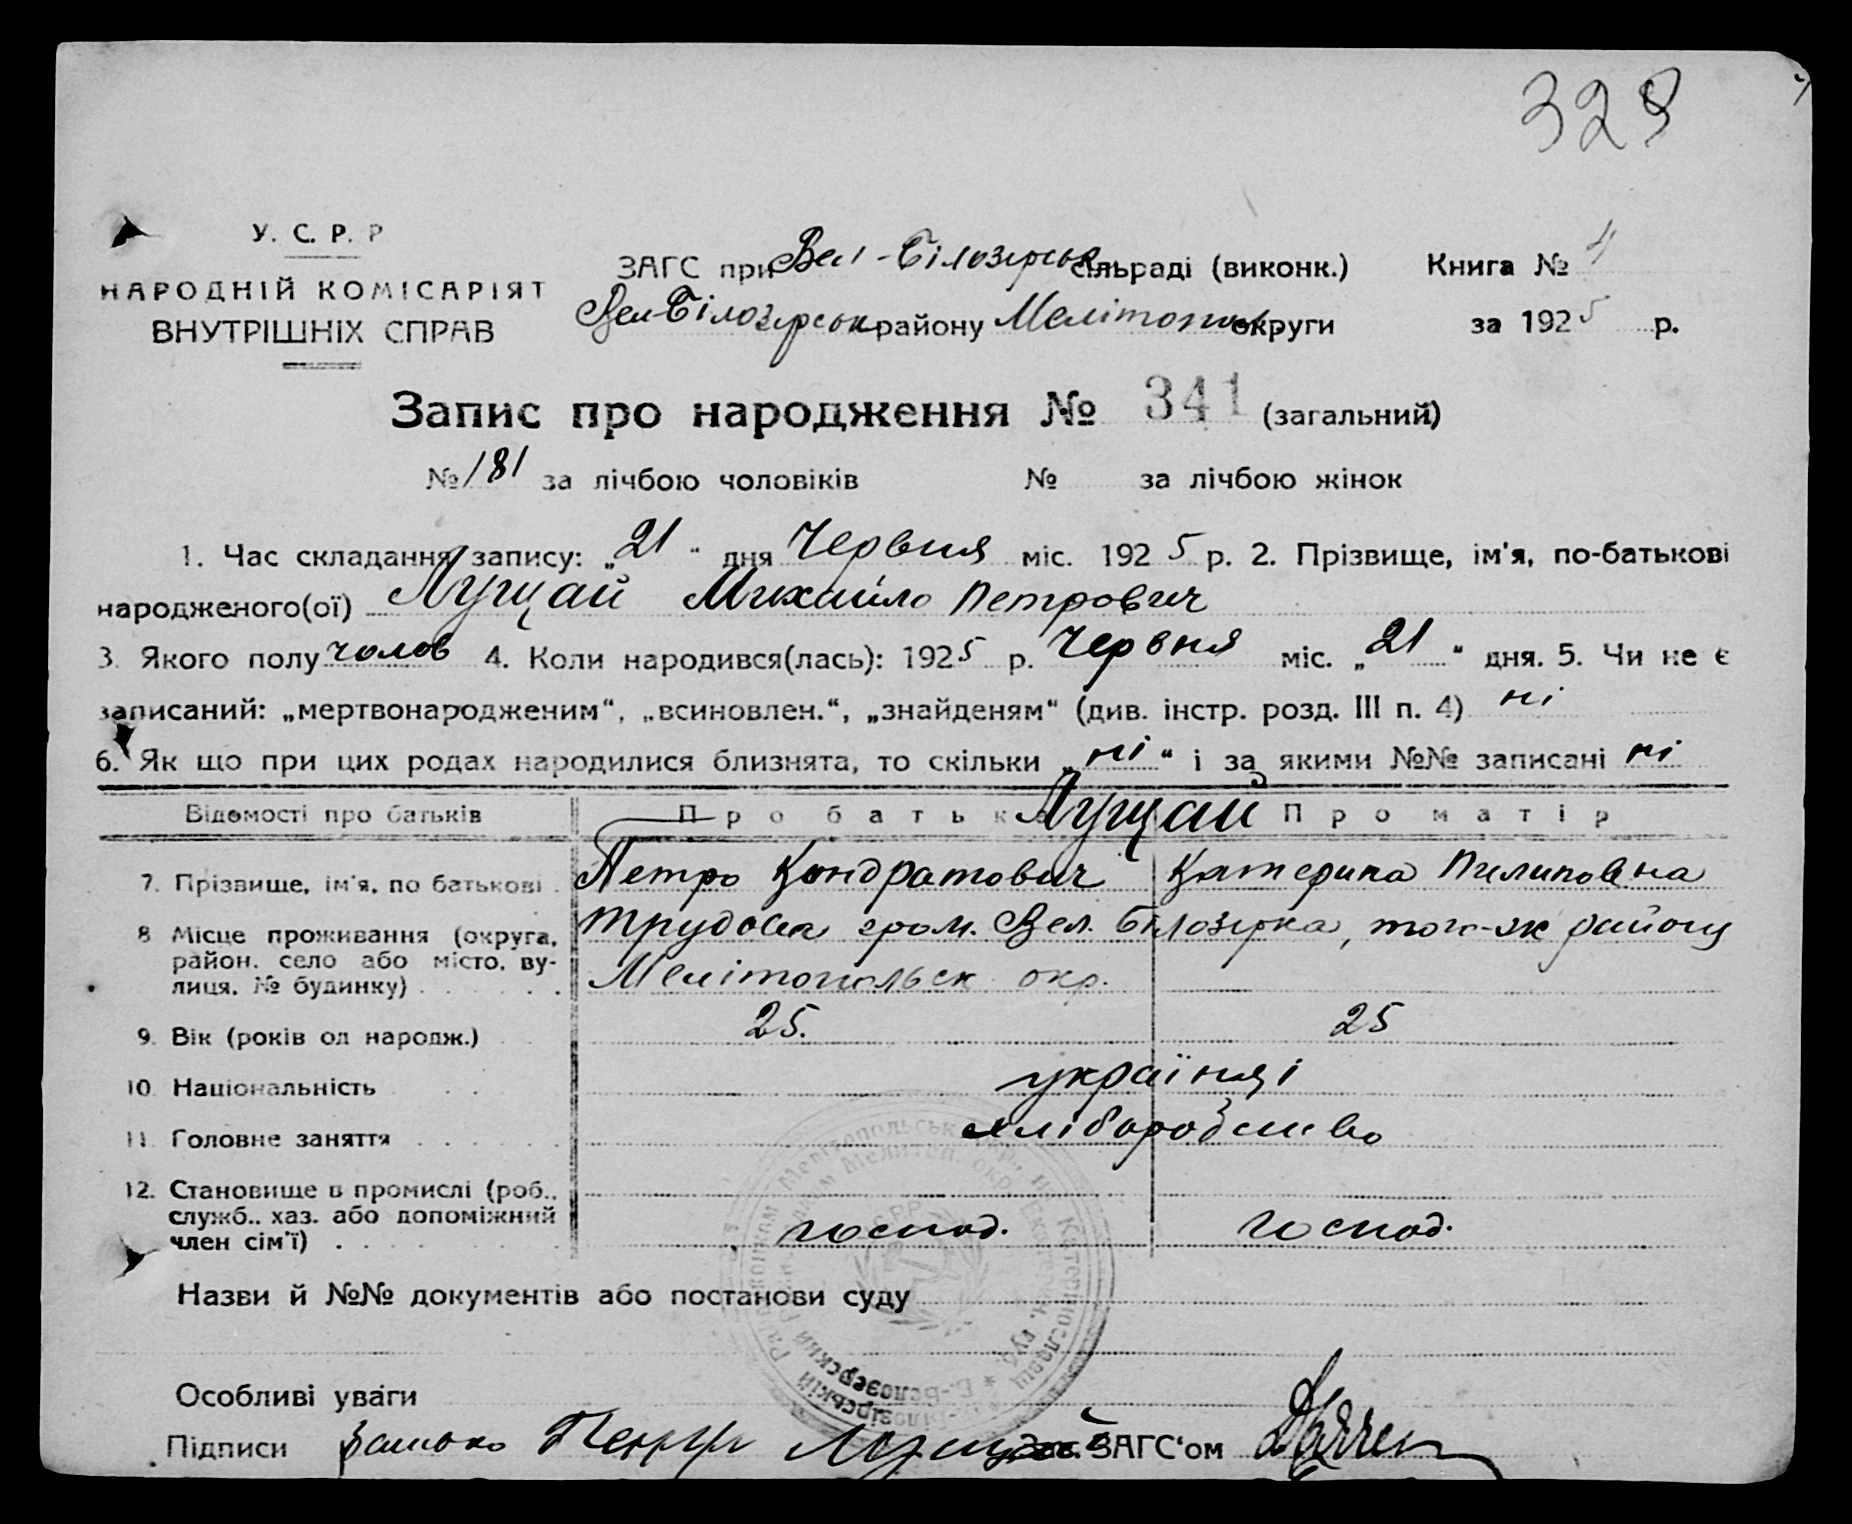 329
У. С. Р. Р
НАРОДНІЙ КОМІСАРІЯТ
ВНУТРІШНІХ СПРАВ
ЗАГС при Вел-Білозірськ сільраді (виконк.) Книга № 4
Вел-Білозірськ району Мелітопол. округи за 1925 р.
Запис про народження № 341 (загальний)
№ 181 за лічбою чоловіків № за лічбою жінок
1. Час складання запису: „21“ дня Червня міс. 1925 р. 2. Прізвище, ім'я, по-батькові
народженого(ої) Лущай Михайло Петрович
3. Якого полу чолов 4. Коли народився(лась): 1925 р. Червня міс. „21“ дня. 5. Чи не є
записаний: „мертвонародженим“, „всиновлен.“, „знайденям“ (див. інстр. розд. III п. 4) ні
6. Як що при цих родах народилися близнята, то скільки „ні“ і за якими №№ записані ні
Відомості про батьків Про батька Лущай Про матір
7. Прізвище, ім'я, по батькові . Петро Кондратович Катерина Пилиповна
8 Місце проживання (округа, район. село або місто, вулиця. № будинку) Трудова гром. Вел. Білозірка, того-ж району
Мелітопольск окр.
9. Вік (років од народж.) 25. 25
10. Національність українці
11. Головне заняття хліборобство
12. Становище в промислі (роб.,
служб., хаз. або допоміжний
член сім'ї) господ. господ.
Назви й №№ документів або постанови суду
Особливі уваги
Підписи батько Петро Лущай Зав. ЗАГС'ом